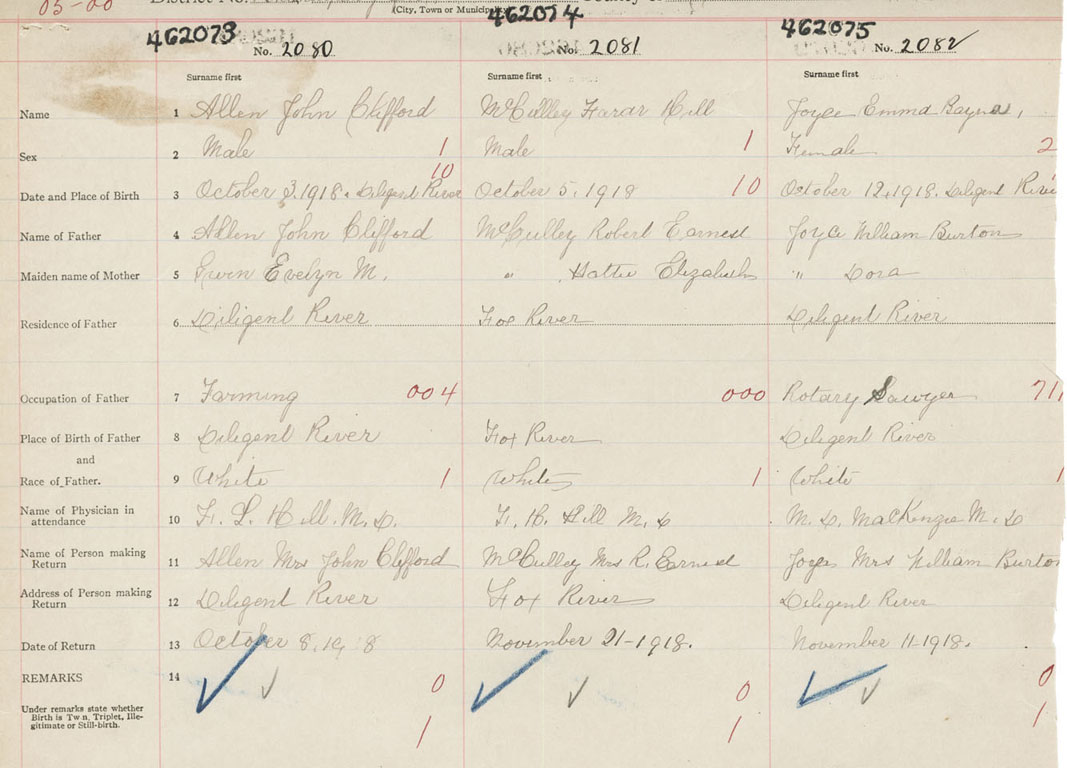 05-00 District No.
(City, Town or Municipality)
462073 No. 2080 462074 No. 2081 462075 No. 2082
Surname first Surname first Surname first
Name 1 Allen John Clifford McCulley Farar Hill Joyce Emma
Sex 2 Male 1 Male 1 Female 2
10
Date and Place of Birth 3 October 3, 1918. Diligent River October 5, 1918 10 October 12, 1918. Diligent River
Name of Father 4 Allen John Clifford McCulley Robert Earnest Joyce William Burton
Maiden name of Mother 5 Evelyn M. " Hattie Elizabeth " Dora
Residence of Father 6 Diligent River Fox River Diligent River
Occupation of Father 7 Farming 004 000 Rotary Sawyer 71
Place of Birth of Father 8 Diligent River Fox River Diligent River
and
Race of Father. 9 White 1 White 1 White 1
Name of Physician in
attendance 10 F. L. Hill. M.D. F. H. Hill M.D M. D. MacKenzie M.D
Name of Person making
Return 11 Allen Mrs John Clifford McCulley Mrs R. Earnest Joyce Mrs William Burton
Address of Person making
Return 12 Diligent River Fox River Diligent River
Date of Return 13 October 8, 19 8 November 21-1918. November 11-1918.
REMARKS 14 0 0 0
Under remarks state whether
Birth is Twin, Triplet, Ille-
gitimate or Still-birth. 1 1 1